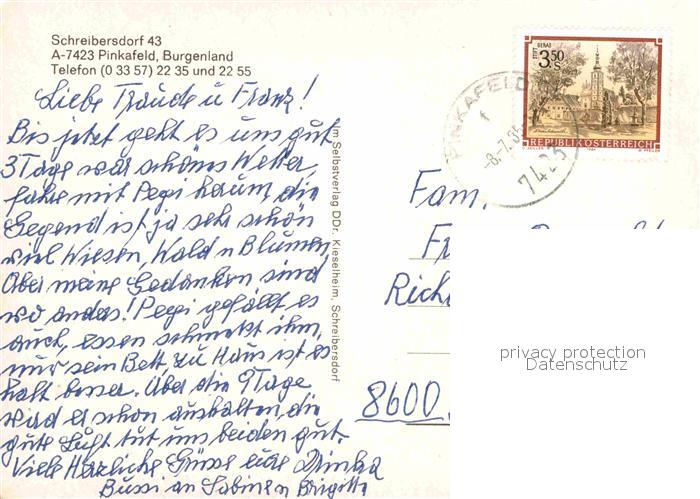 Schreibersdorf 43
A-7423 Pinkafeld, Burgenland
Telefon (0 33 57) 22 35 und 22 55
Liebe Traude u Franz!
Bis jetzt geht es uns gut
3 Tage war schönes Wetter,
fahre mit Pepi herum, die
Gegend ist ja sehr schön
viel Wiesen, Wald u Blumen,
Aber meine Gedanken sind
wo anders! Pepi gefällt es
auch, essen schmekt ihm,
nur sein Bett, zu Haus ist es
halt besser. Aber die 9 Tage
wird er schon aushalten, die
gute Luft tut uns beiden gut.
Viele Herzliche Grüsse eure
Bussi an Sabine u Brigitte
Im Selbstverlag DDr. Kieselheim, Schreibersdorf
STIFT GERAS
3.50
S
REPUBLIK ÖSTERREICH
PINKAFELD
-8.-7.85
7423
Fam.
Fr
Rich
8600
privacy protection
Datenschutz